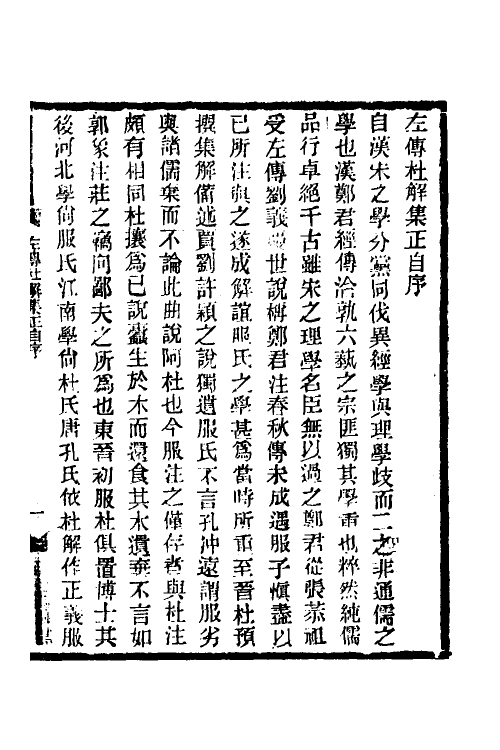 左傳杜解集正自序
自漢宋之學分黨同伐異經學與理學歧而二之非通儒之
學也漢鄭君經傳洽孰六蓺之宗匪獨其學重也粹然純儒
品行卓絕千古雖宋之理學名臣無以過之鄭君從張恭祖
受左傳劉義慶世說稱鄭君注春秋傳未成遇服子慎盡以
已所注與之遂成解誼服氏之學甚為當時所重至晉杜預
撰集解備述賈劉許穎之說獨遺服氏不言孔沖遠謂服劣
與諸儒棄而不論此曲說阿杜也今服注之僅存者與杜注
頗有相同杜攘為已說蠹生於木而還食其木遺棄不言如
郭象注莊之竊向鄙夫之所為也東晉初服杜俱置博士其
後河北學尚服氏江南學尚杜氏唐孔氏依杜解作正義服
左傳杜解集正自序
一